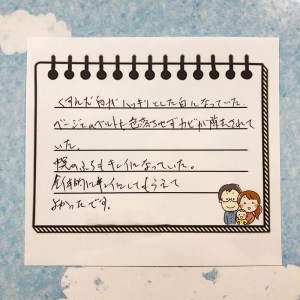 くすんだ白がハッキリとした白になっていた。
ベージュのベルトも色落ちせずカビが除去されて
いた。
襟のふちもキレイになっていた。
全体的にキレイにしてもらえて
よかったです。